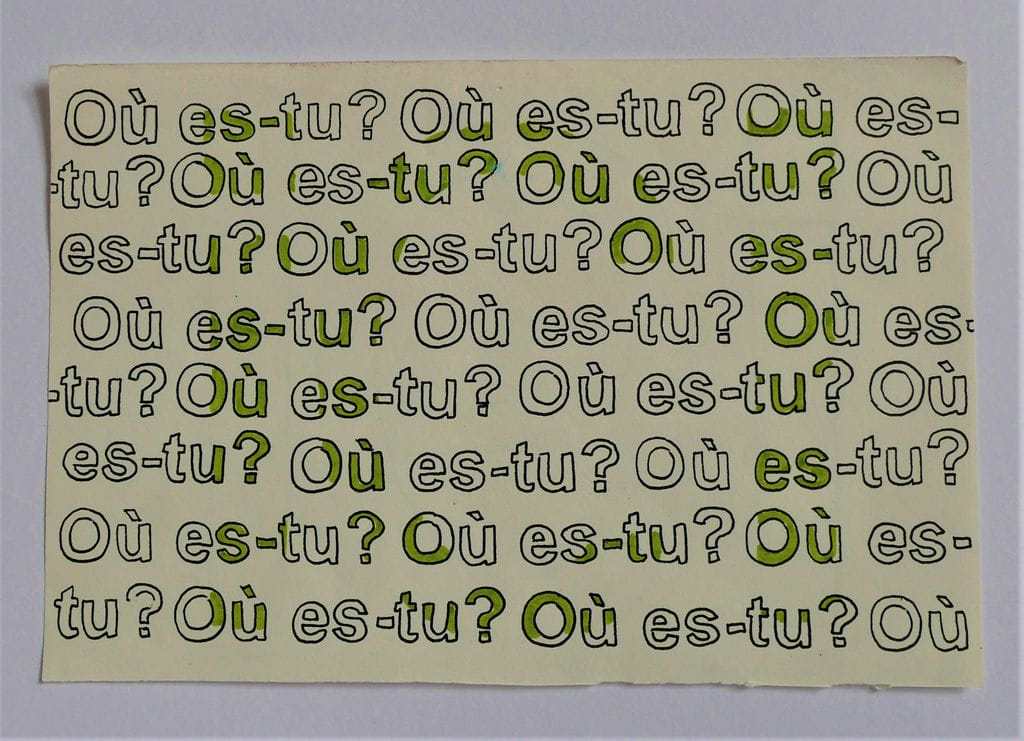 Où es-tu? Où es-tu? Où es-
tu? Où es-tu? Où es-tu? Où
es-tu? Où es-tu? Où es-tu?
Où es-tu? Où es-tu? Où es-
tu? Où es-tu? Où es-tu? Où
es-tu? Où es-tu? Où es-tu?
Où es-tu? Où es-tu? Où es-
tu? Où es-tu? Où es-tu? Où